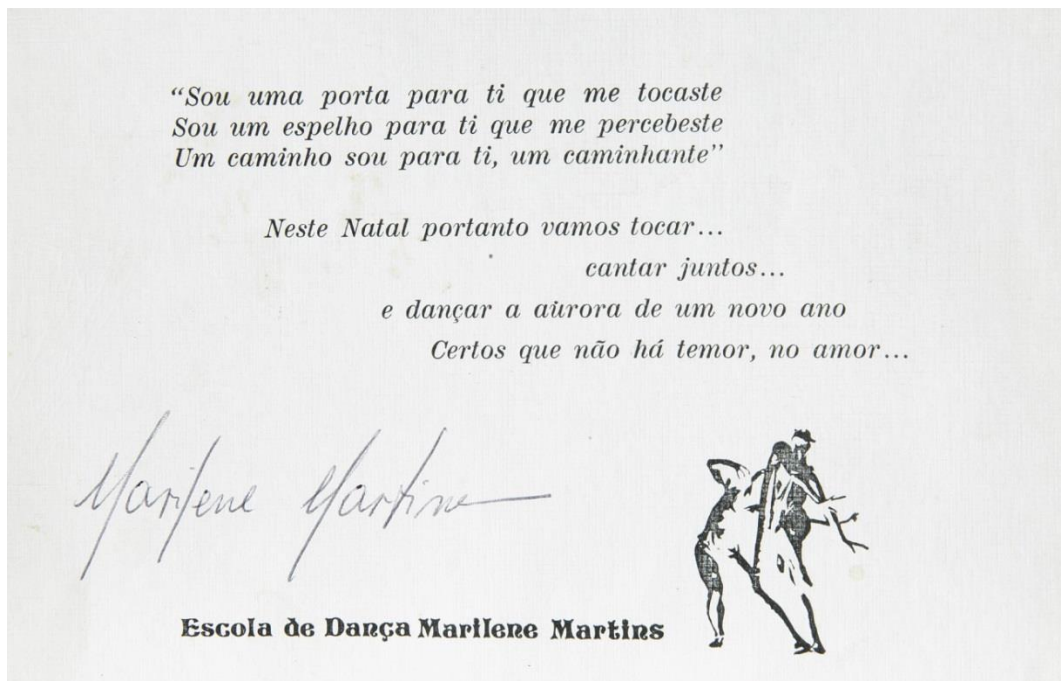 “Sou uma porta para ti que me tocaste
Sou um espelho para ti que me percebeste
Um caminho sou para ti, um caminhante”
Neste Natal portanto vamos tocar...
cantar juntos...
e dançar a aurora de um novo ano
Certos que não há temor, no amor...
Marilene Martins
Escola de Dança Marilene Martins